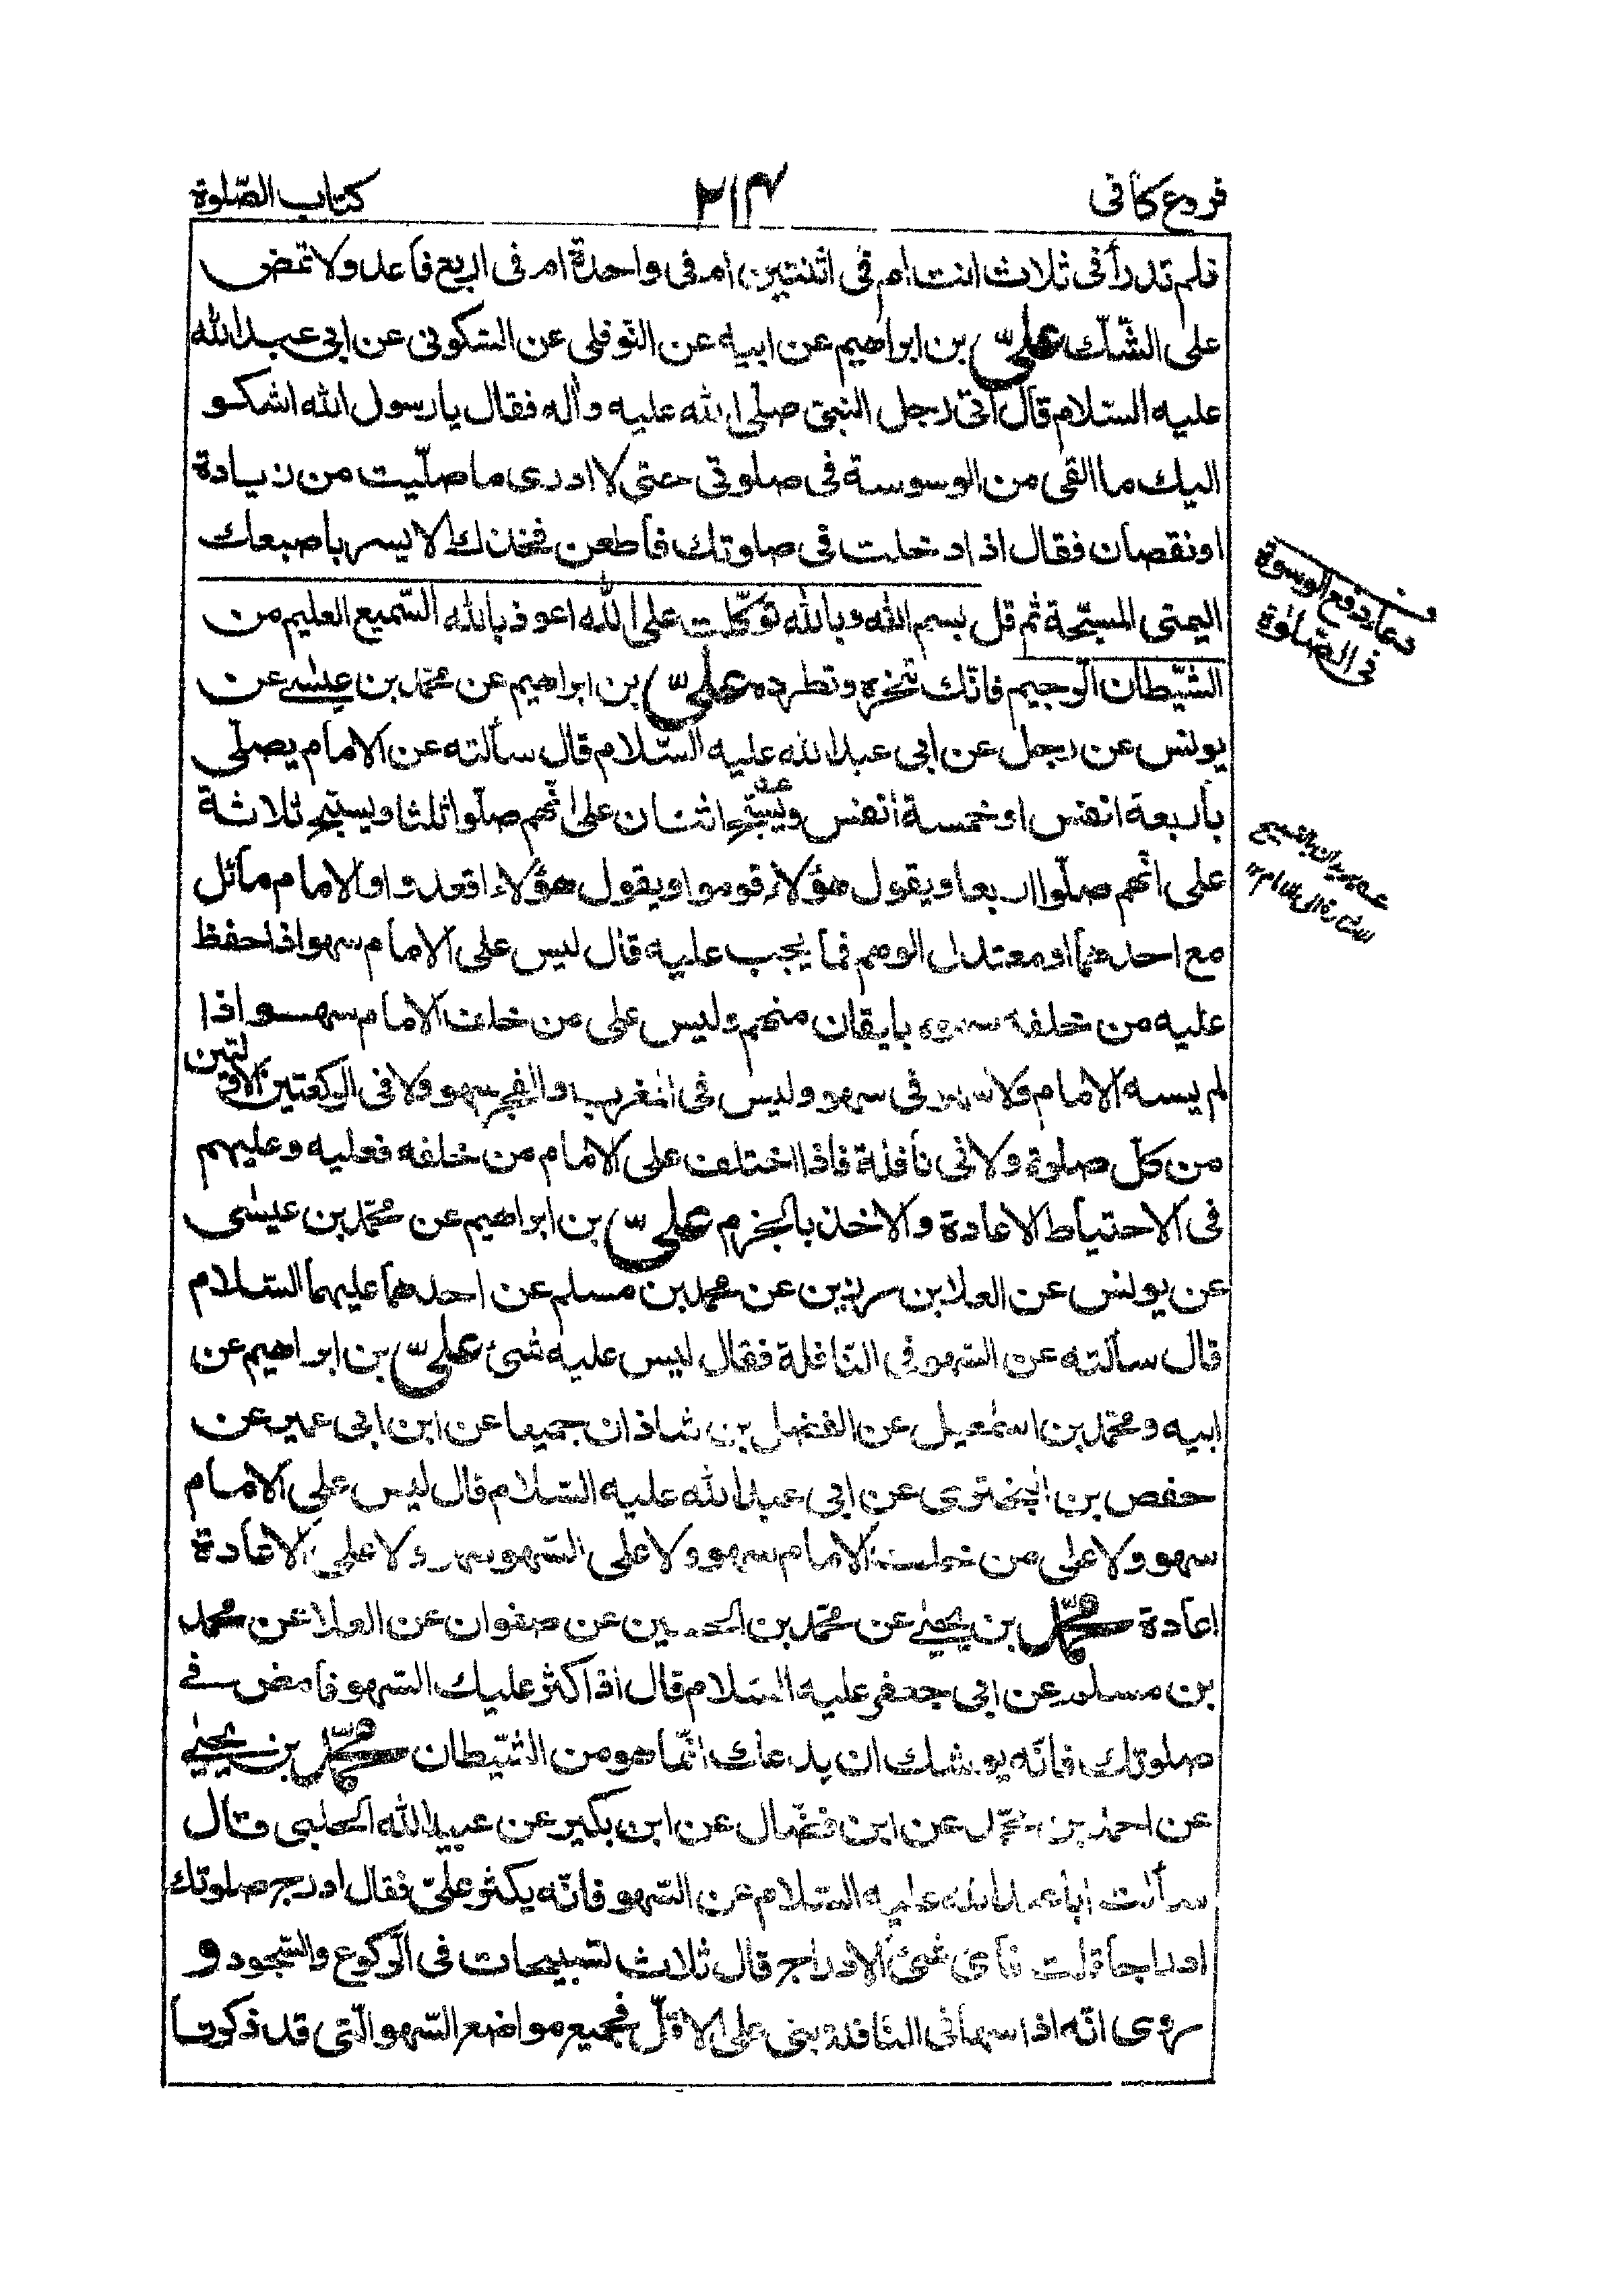 فروع كافى
٢١٤
كتاب الصّلوة
فلم تدر أفى ثلاث انت ام فى اثنتين ام فى واحدة ام فى اربع فاعد ولا تمض
على الشّك علىّ بن ابراهيم عن ابيه عن النّوفلى عن السّكونى عن ابى عبد الله
عليه السّلام قال اتى رجل النبىّ صلّى الله عليه وآله فقال يا رسول الله اشكو
اليك ما القى من الوسوسة فى صلوتى حتى لا ادرى ما صلّيت من زيادة
او نقصان فقال اذا دخلت فى صلوتك فاطعن فخذك الايسر باصبعك
اليمنى المسبّحة ثم قل بسم الله وبالله توكّلت على الله اعوذ بالله السّميع العليم من
الشّيطان الرّجيم فانّك تنحره وتطرده علىّ بن ابراهيم عن محمّد بن عيسى عن
يونس عن رجل عن ابى عبد الله عليه السّلام قال سألته عن الامام يصلّى
بأربعة انفس او خمسة أنفس ويسبّح اثنان على انّهم صلّوا ثلثا ويسبّح ثلاثة
على انّهم صلّوا اربعا ويقول هؤلاء قوموا ويقول هؤلاء اقعدوا والامام مائل
مع احدهما او معتدل الوهم فما يجب عليه قال ليس على الامام سهو اذا حفظ
عليه من خلفه سهوه بايقان منهم وليس على من خلف الامام سهو اذا
لم يسه الامام ولا سهو فى سهو وليس فى المغرب والفجر سهو ولا فى الركعتين الاوّلتين
من كلّ صلوة ولا فى نافلة فاذا اختلف على الامام من خلفه فعليه وعليهم
فى الاحتياط الاعادة والاخذ بالجزم علىّ بن ابراهيم عن محمّد بن عيسى
عن يونس عن العلا بن رزين عن محمد بن مسلم عن احدهما عليهما السّلام
قال سألته عن السّهو فى النّافلة فقال ليس عليه شىء علىّ بن ابراهيم عن
ابيه ومحمّد بن اسمعيل عن الفضل بن شاذان جميعا عن ابن ابى عمير عن
حفص بن البخترى عن ابى عبد الله عليه السّلام قال ليس على الامام
سهو ولا على من خلف الامام سهو ولا على السّهو سهو ولا على الاعادة
اعادة محمّد بن يحيى عن محمّد بن الحسين عن صفوان عن العلا عن محمد
بن مسلم عن ابى جعفر عليه السّلام قال اذا كثر عليك السّهو فامض فى
صلوتك فانّه يوشك ان يدعك انّما هو من الشّيطان محمّد بن يحيى
عن احمد بن محمّد عن ابن فضّال عن ابن بكير عن عبيد الله الحلبى قال
سألت ابا عبد الله عليه السّلام عن السّهو فانّه يكثر علىّ فقال ادرج صلوتك
ادراجا قلت فأى شىء الادراج قال ثلاث تسبيحات فى الرّكوع والسّجود و
روى انّه اذا سها فى النّافلة بنى على الاقلّ فجميع مواضع السّهو الّتى قد ذكرنا
دعا دفع الوسوسة
فى الصّلوة